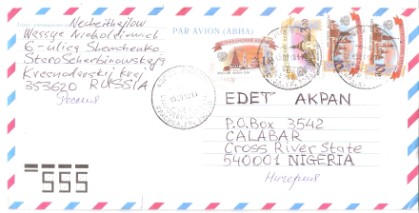 Necheithajlow
Wassye Nicholdiewich
6-ulica Shewchenko
StaroScherbinowskaja
Krasnodarskij kraj
353620 RUSSIA
Россия
PAR AVION (АВИА)
EDET AKPAN
P.O.Box 3542
CALABAR
Cross River State
540001 NIGERIA
Нигерия
555